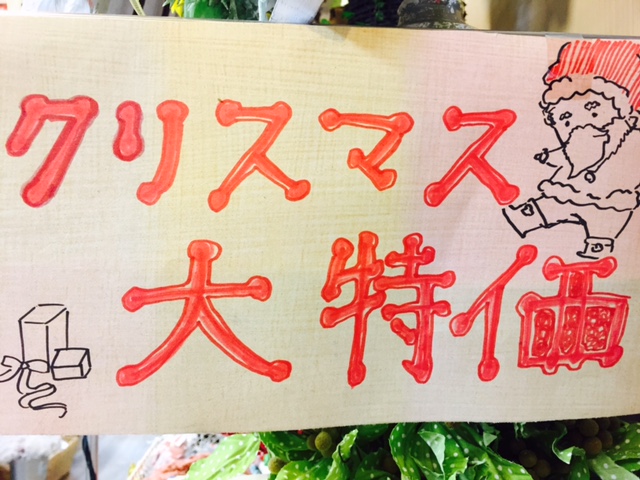 クリスマス
大特価